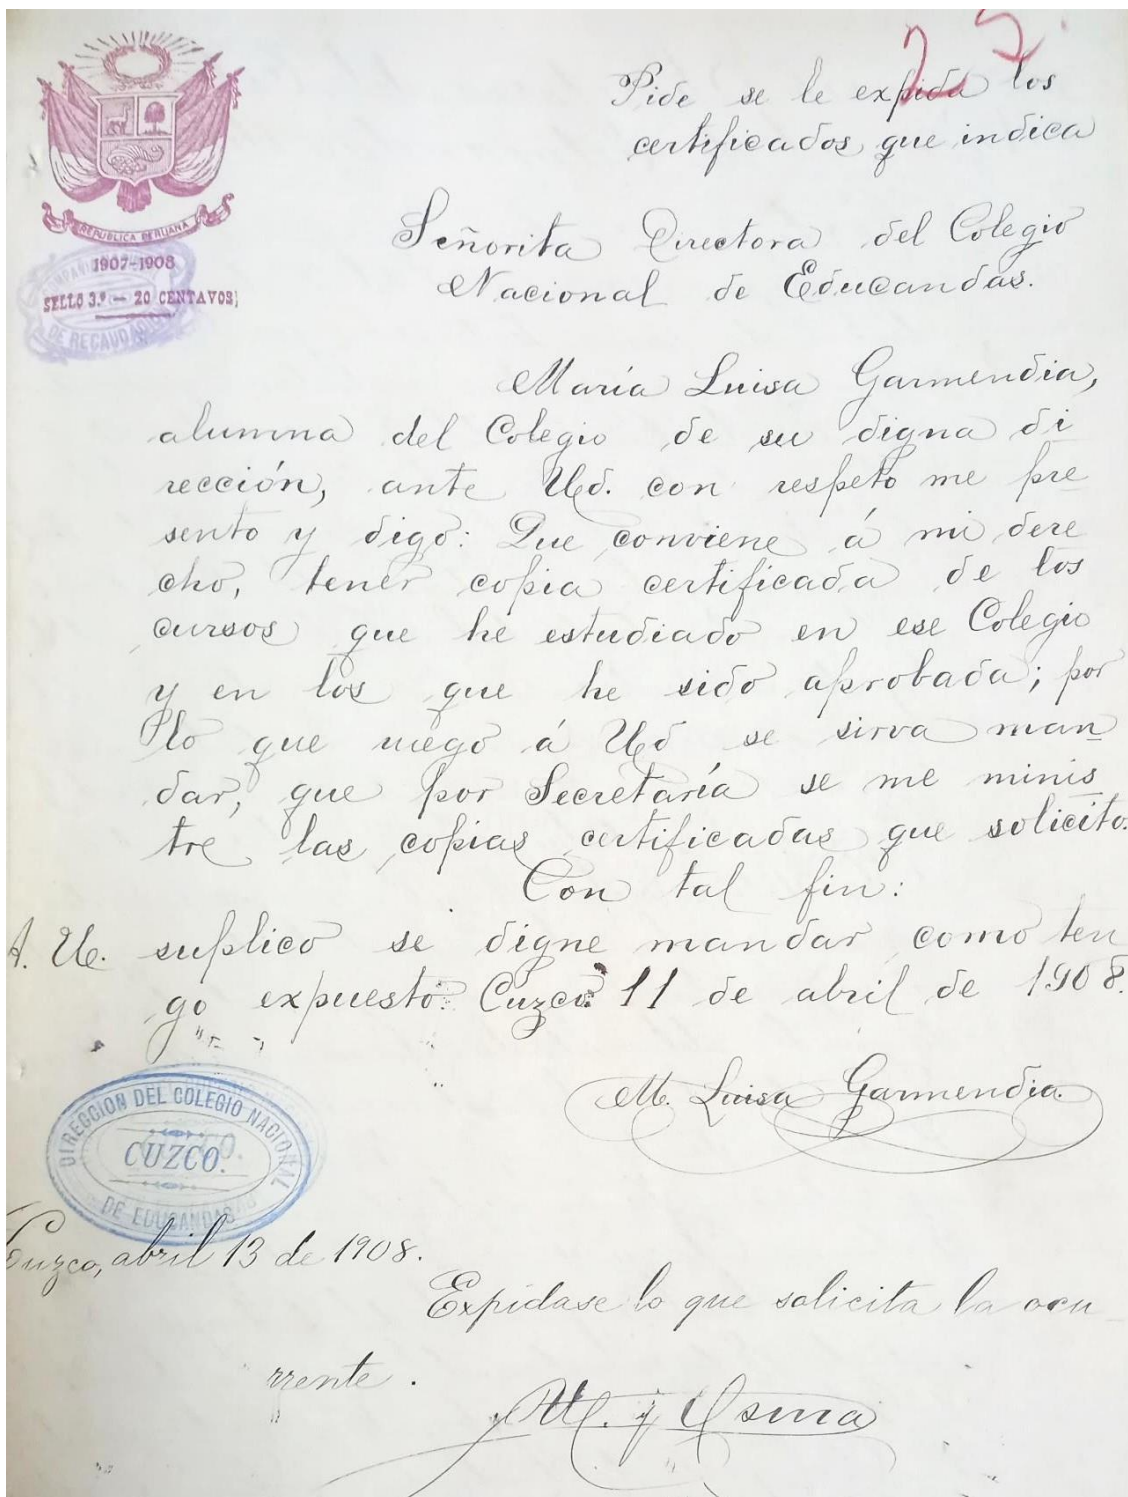 Pide se le expida los
certificados que indica
REPUBLICA PERUANA
1907-1908
SELLO 3.º — 20 CENTAVOS
DE RECAUDA
Señorita Directora del Colegio
Nacional de Educandas.
María Luisa Garmendia,
alumna del Colegio de su digna di
rección, ante Ud. con respeto me pre
sento y digo: Que conviene á mi dere
cho, tener copia certificada de los
cursos que he estudiado en ese Colegio
y en los que he sido aprobada; por
lo que ruego á Ud se sirva man
dar, que por Secretaría se me minis
tre las copias certificadas que solicito.
Con tal fin:
A. U. suplico se digne mandar como ten
go expuesto. Cuzco 11 de abril de 1908.
M. Luisa Garmendia.
DIRECCION DEL COLEGIO NACIONAL
CUZCO.
DE EDUCANDAS
Cuzco, abril 13 de 1908.
Expídase lo que solicita la ocu-
rrente.